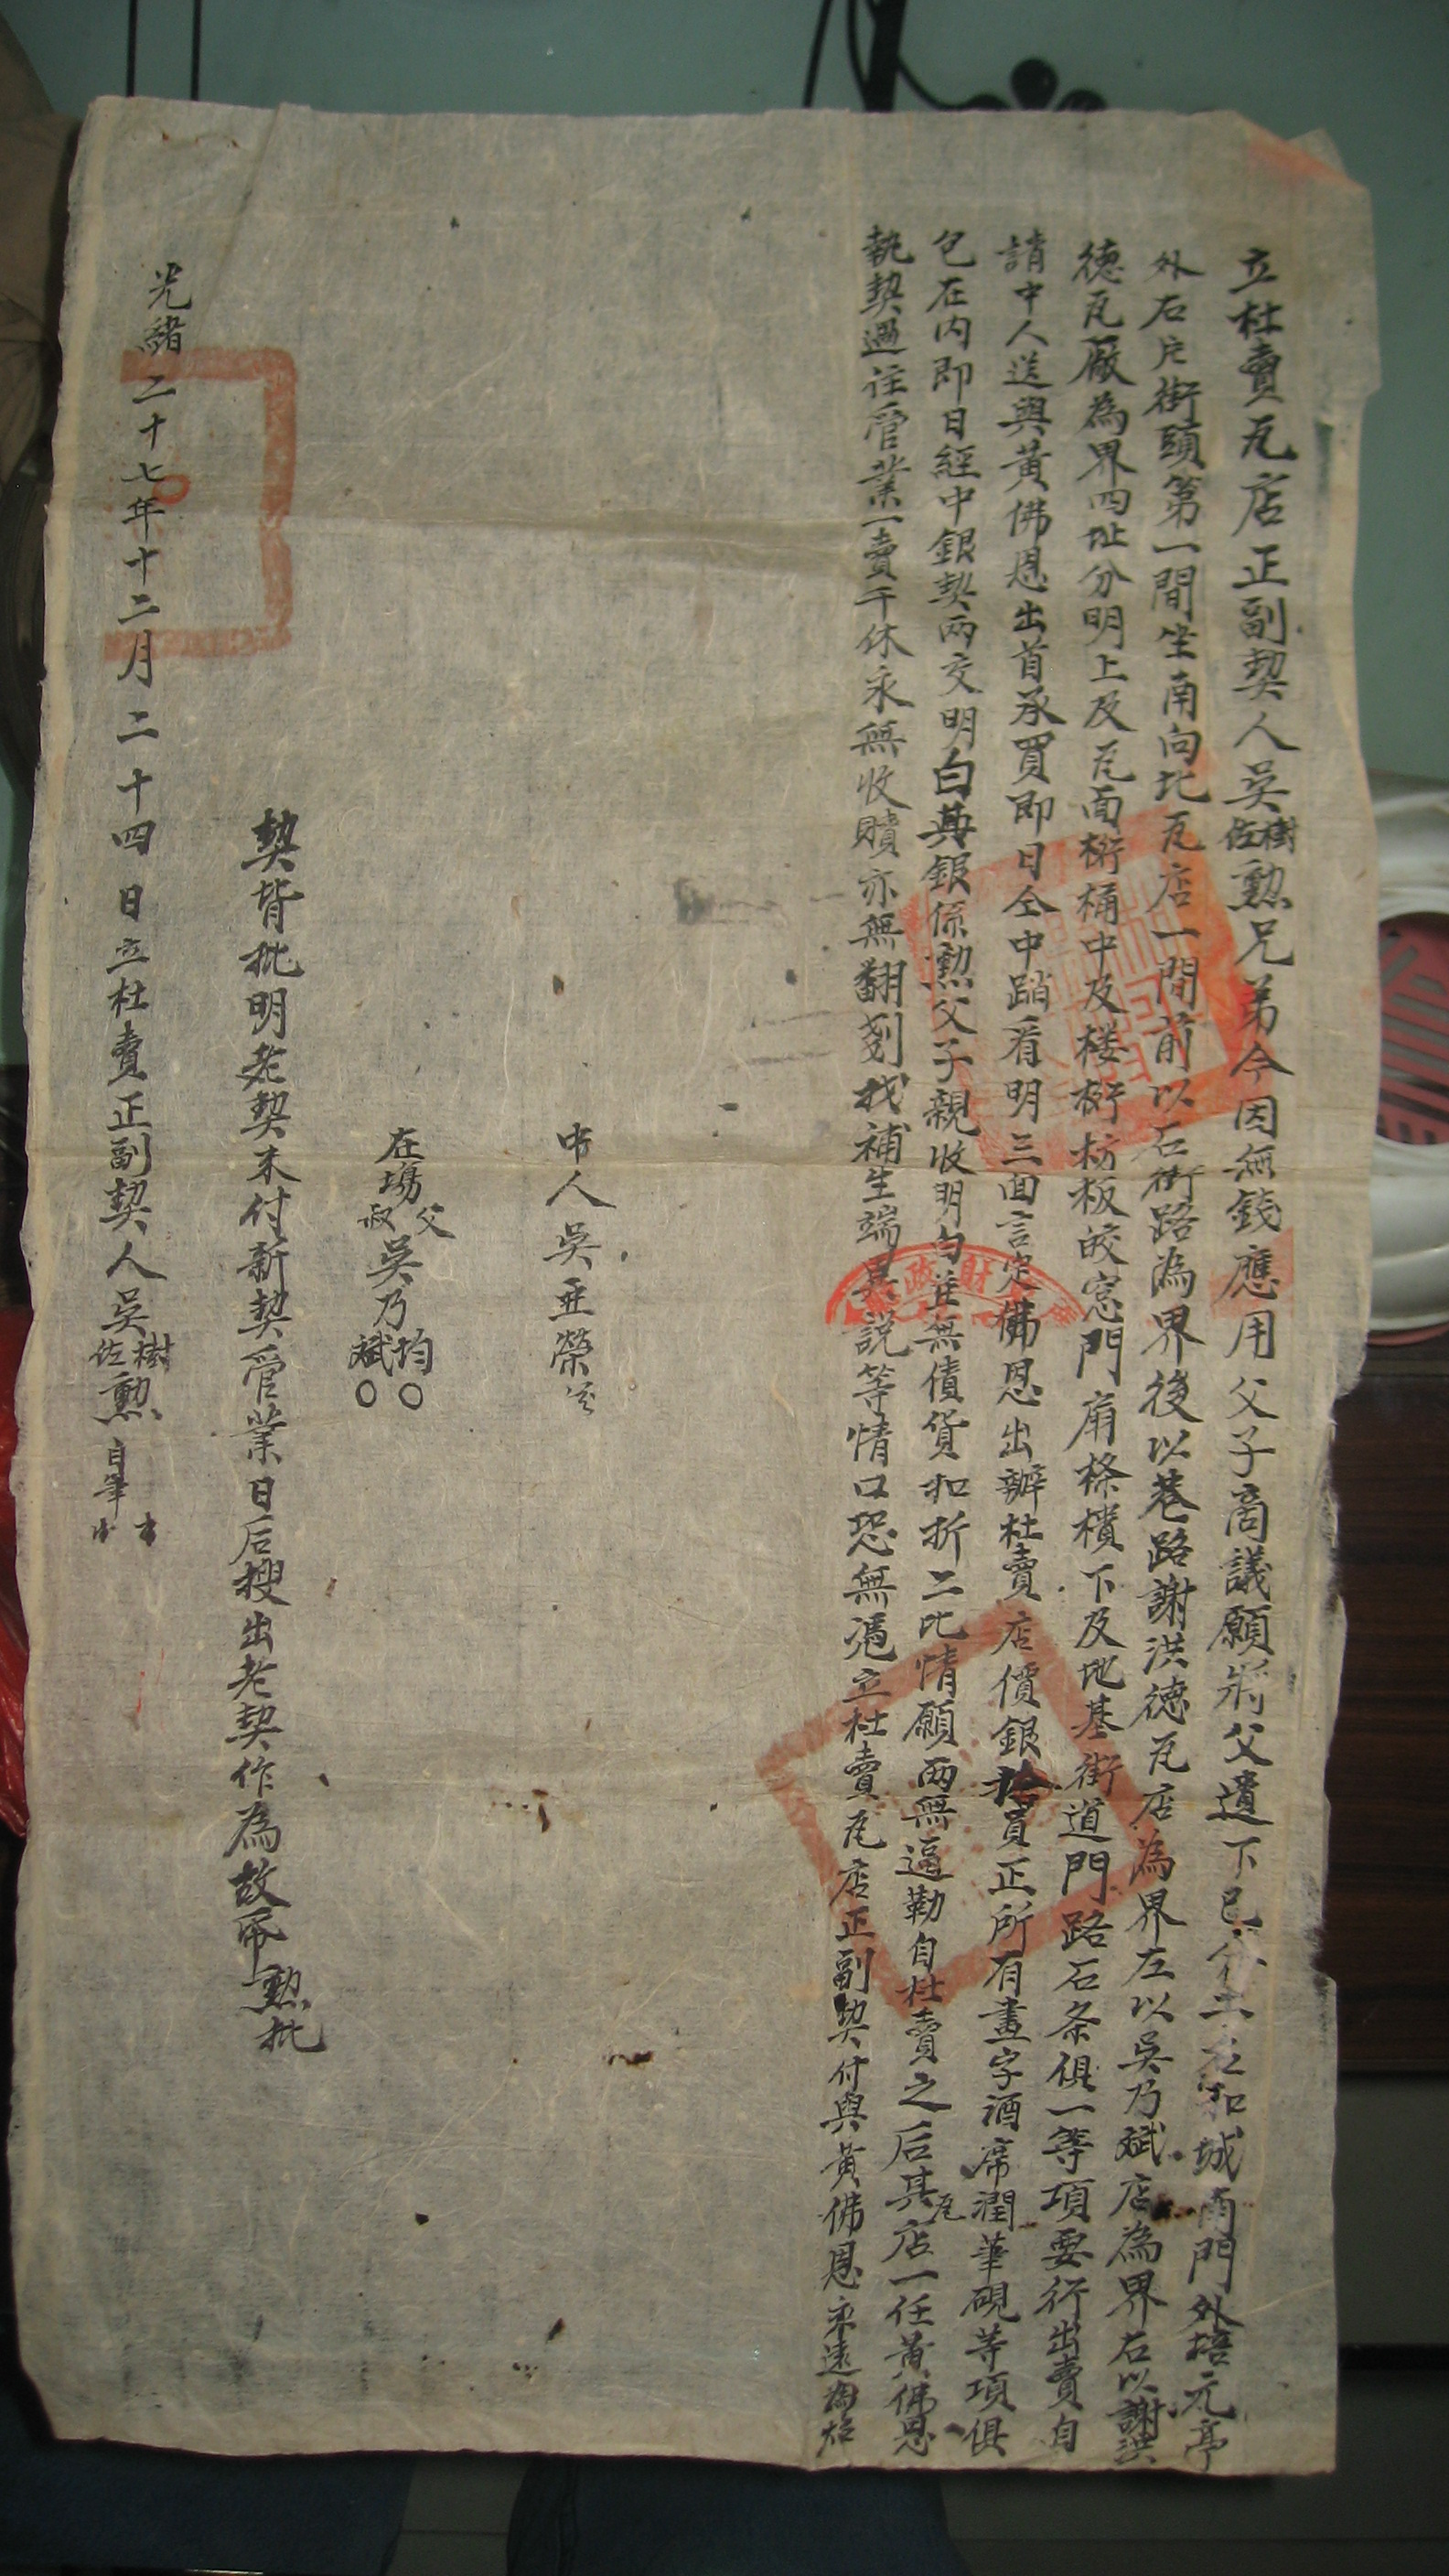 立杜賣瓦店正副契人吳樹佐勲兄弟今因無錢應用父子商議願將父遺下已分土名和城南門外培元亭
外石片街頭第一間坐南向北瓦店一間前以石街路為界後以巷路謝洪德瓦店為界左以吳乃斌店為界右以謝洪
德瓦廠為界四址分明上及瓦面桁桷中及楼桁枋板皎窓門扇條樻下及地基街道門路石条俱一等項要行出賣自
請中人送與黃佛恩出首承買即日仝中踏看明三面言定佛恩出辦杜賣店價銀拾員正所有畫字酒席潤筆硯等項俱
包在內即日經中銀契两交明白其銀係勲父子親收明白並無債貨扣折二比情願两無逼勒自杜賣之后其瓦店一任黃佛恩
執契過往管業一賣千休永無收贖亦無翻剗找補生端異説等情口恐無馮立杜賣瓦店正副契付與黃佛恩永遠為炤
中人吳亜榮
在塲父叔吳乃均斌〇〇
契背批明老契未付新契管業日后搜出老契作為故帋勲批
光緒二十七年十二月二十四日立杜賣正副契人吳樹佐勲自筆
財政